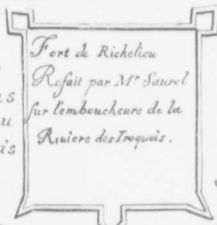 Fort de Richelieu
Refait par Mr. Saurel
sur l'emboucheure de la
Riviere des Iroquois.